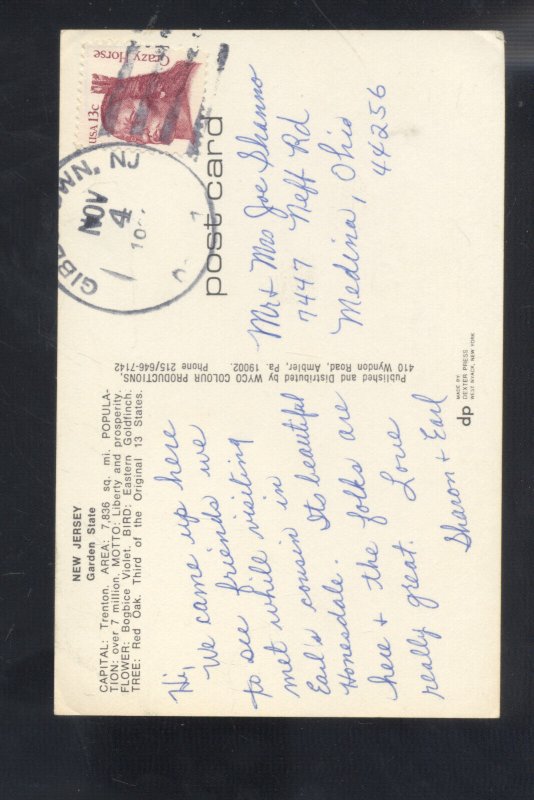 NEW JERSEY
Garden State
CAPITAL: Trenton. AREA: 7,836 sq. mi. POPULA-
TION: over 7 million. MOTTO: Liberty and prosperity.
FLOWER: Bogbice Violet. BIRD: Eastern Goldfinch.
TREE: Red Oak. Third of the Original 13 States.
Hi,
We came up here
to see friends we
met while visiting
Earl's cousin in
Honesdale. Its beautiful
here & the folks are
really great. Love
Sharon & Earl
Published and Distributed by WYCO COLOUR PRODUCTIONS.
410 Wyndon Road, Ambler, Pa. 19002.
Phone 215/646-7142
post card
Crazy Horse
USA 13c
NJ
NOV
4
Mr & Mrs Joe Shanno
7447 Neff Rd
Medina, Ohio
44256
dp
MADE BY
DEXTER PRESS
WEST NYACK, NEW YORK